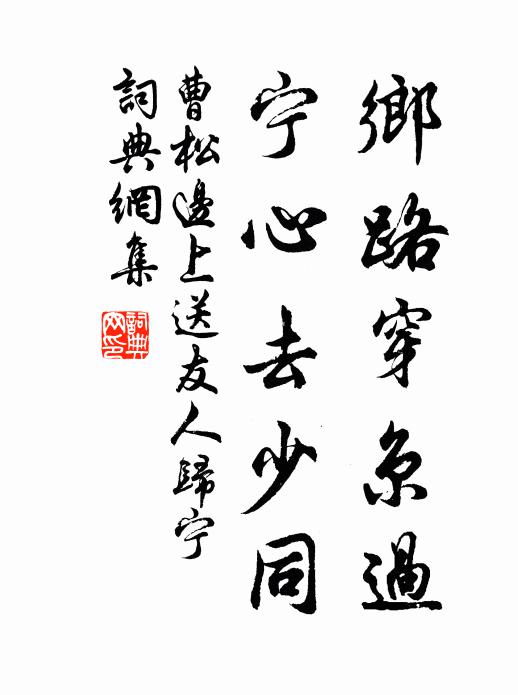 鄉路穿京過
宁心去少同
曹松邊上送友人歸宁
詞典網集
詞典
网印